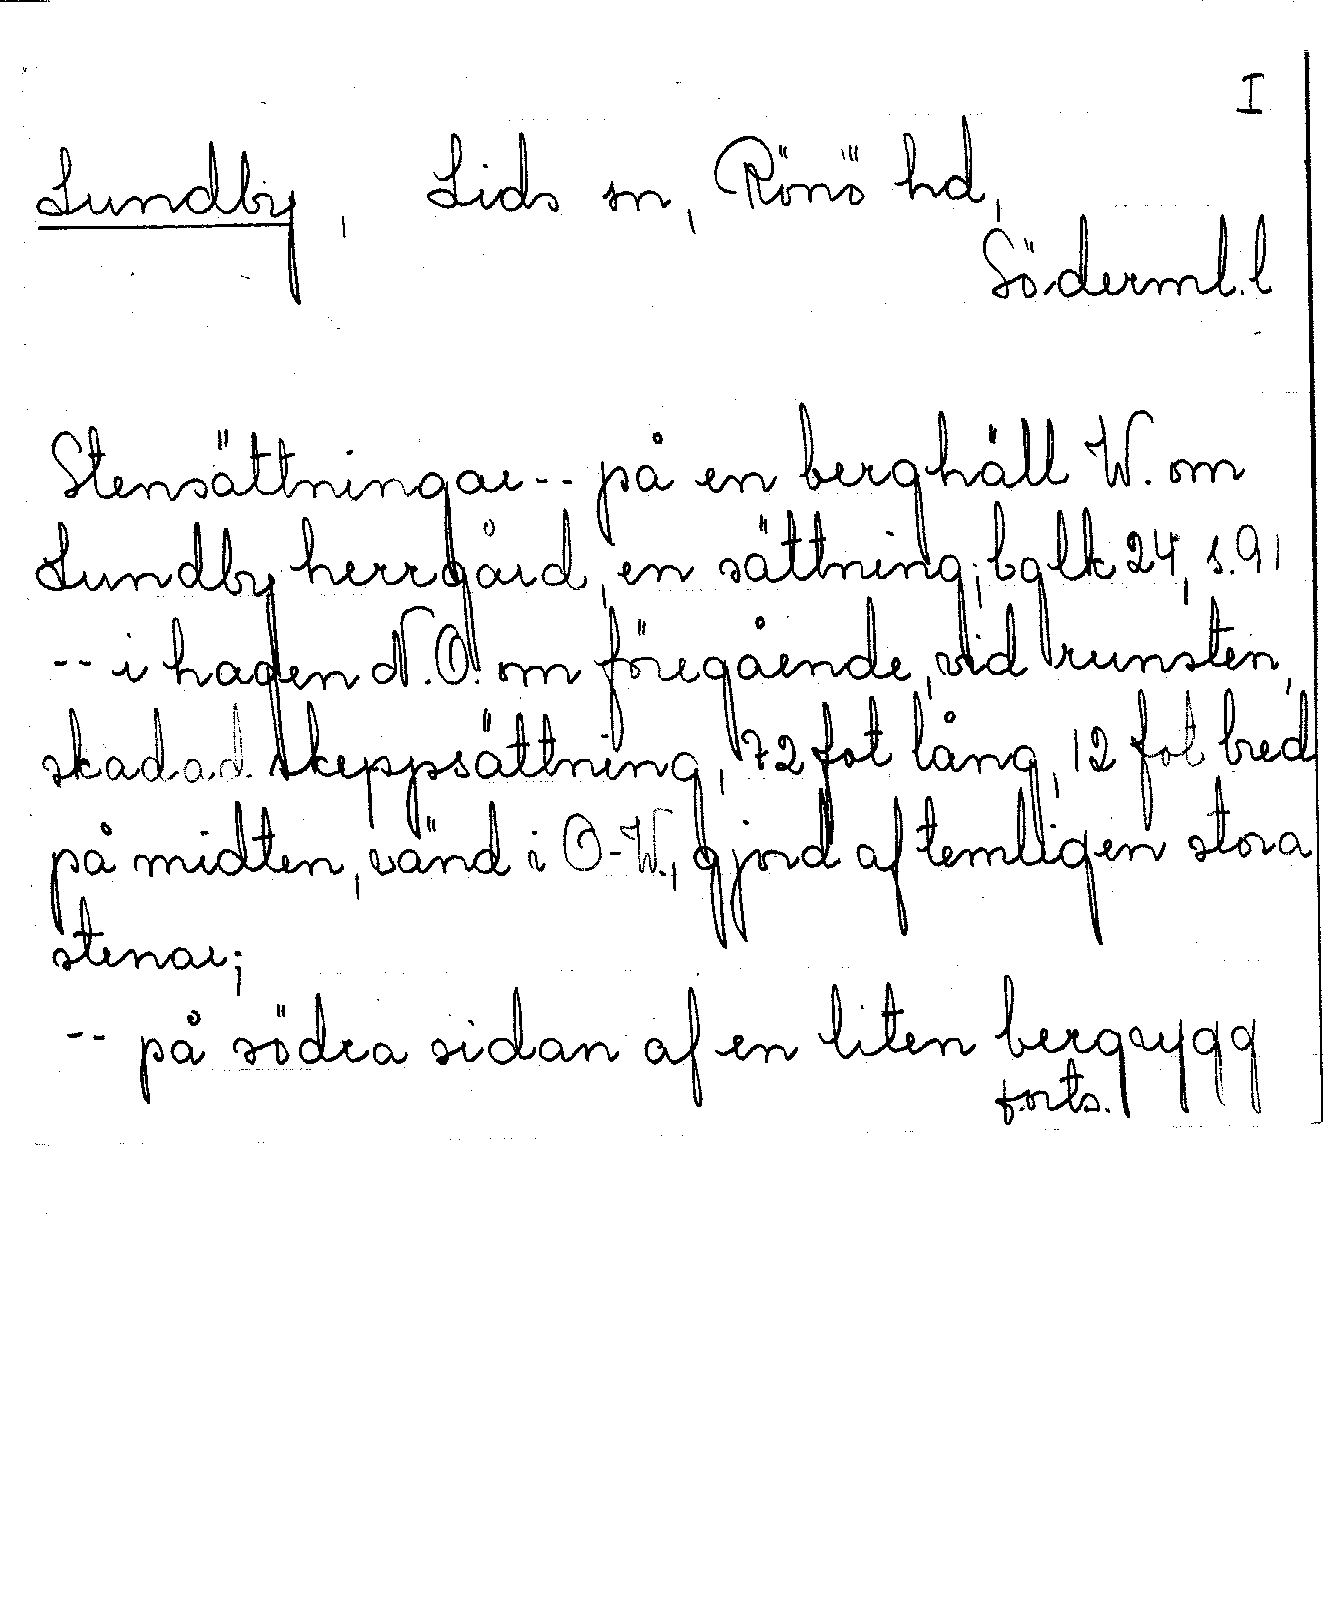 I
Lundby, Lids sn, Rönö hd,
Söderml.l
Stensättningar -- på en berghäll W. om
Lundby herrgård, en sättning; balk 24, s. 91
-- i hagen N.O. om föregående, vid runsten,
skadad skeppsättning, 72 fot lång, 12 fot bred
på midten, vänd i O-W., gjord af temligen stora
stenar;
-- på södra sidan af en liten bergrygg
forts.